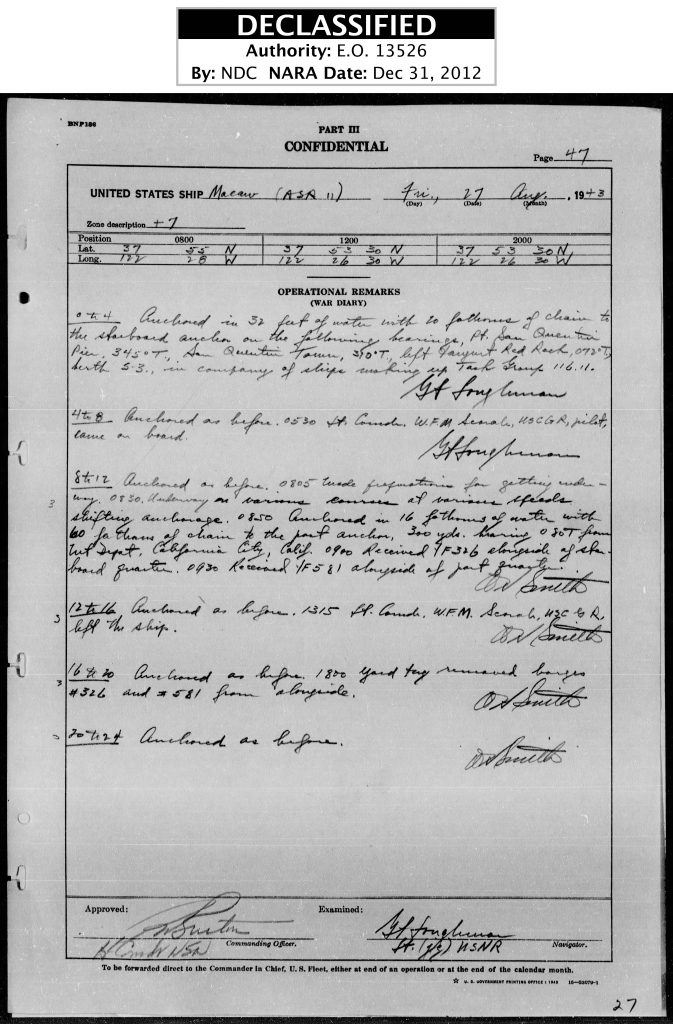 DECLASSIFIED
Authority: E.O. 13526
By: NDC NARA Date: Dec 31, 2012
BNP186
PART III
CONFIDENTIAL
Page 47
UNITED STATES SHIP Macaw (ASR 11) Fri., 27 Aug., 1943
(Day) (Date) (Month)
Zone description +7
Position 0800 1200 2000
Lat. 37 55 N 37 53 30 N 37 53 30 N
Long. 122 28 W 122 26 30 W 122 26 30 W
OPERATIONAL REMARKS
(WAR DIARY)
0 to 4 Anchored in 32 feet of water with 20 fathoms of chain to
the starboard anchor on the following bearings, Pt. San Quentin
Pier, 345°T, San Quentin Tower, 310°T, left Tangent Red Rock, 072°T,
berth 53, in company of ships making up Task Group 116.11.
4 to 8 Anchored as before. 0530 Lt. Comdr. W.F.M. USCGR, pilot,
came on board.
8 to 12 Anchored as before. 0805 Made preparations for getting under-
way. 0830. Underway on various courses at various speeds
shifting anchorage. 0850 Anchored in 16 fathoms of water with
60 fathoms of chain to the port anchor, 300 yds. bearing 080T from
Net Depot, California City, Calif. 0900 Received YF326 alongside of star-
board quarter. 0930 Received YF581 alongside of port quarter.
Smith
12 to 16 Anchored as before. 1315 Lt. Comdr. W.F.M. USCGR,
left the ship.
Smith
16 to 20 Anchored as before. 1800 Yard tug removed barges
#326 and #581 from alongside.
Smith
20 to 24 Anchored as before.
Smith
Approved: Examined:
Lt Comdr USN Commanding Officer. Lt. (jg) USNR Navigator.
To be forwarded direct to the Commander in Chief, U. S. Fleet, either at end of an operation or at the end of the calendar month.
☆ U. S. GOVERNMENT PRINTING OFFICE : 1943
27